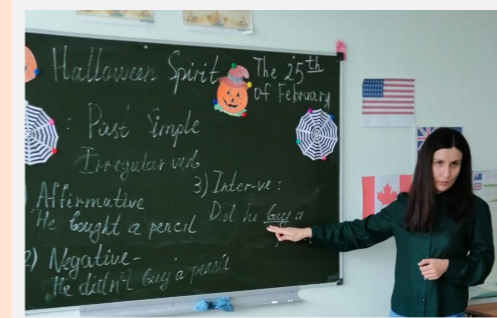 Halloween Spirit
The 25th
of February
Past Simple
Irregular verb
1) Affirmative
He bought a pencil
2) Negative-
He didn't buy a pencil
3) Inter-ve:
Did he buy a